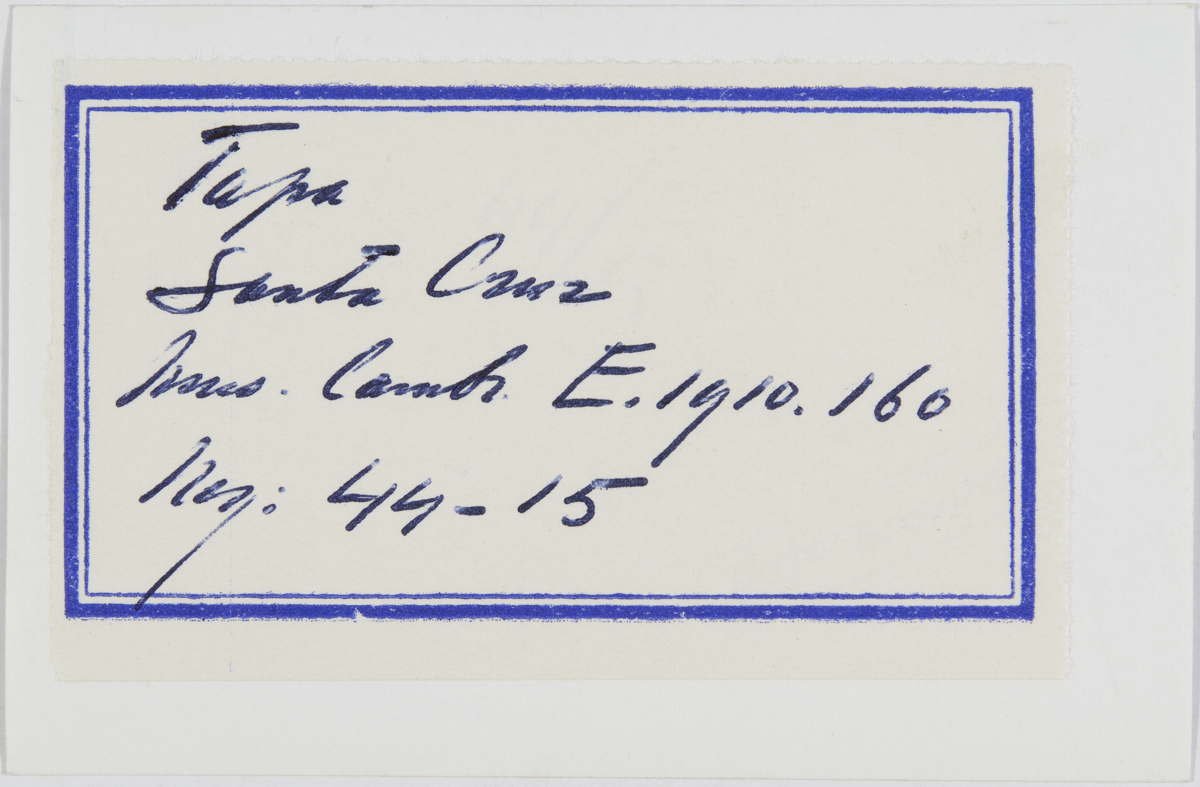 Tapa
Santa Cruz
Mus. Camb. E.1910.160
Neg: 44-15